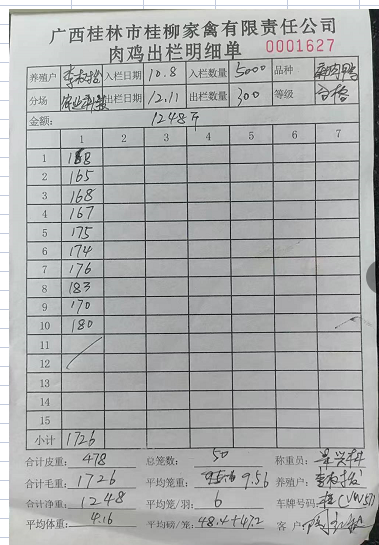 广西桂林市桂柳家禽有限责任公司
肉鸡出栏明细单 0001627
养殖户 入栏日期 10.8 入栏数量 5000 品种
分场 出栏日期 12.11 出栏数量 300 等级 合格
金额: 1248斤
1 2 3 4 5 6 7
1 168
2 165
3 168
4 167
5 175
6 174
7 176
8 183
9 170
10 180
11
12
13
14
15
小计 1726
合计皮重: 478 总笼数: 50 称重员:
合计毛重: 1726 平均笼重: 9.56 养殖户:
合计净重: 1248 平均笼/羽: 6 车牌号码:
平均体重: 4.16 平均磅/笼: 48.4+47.2 客户